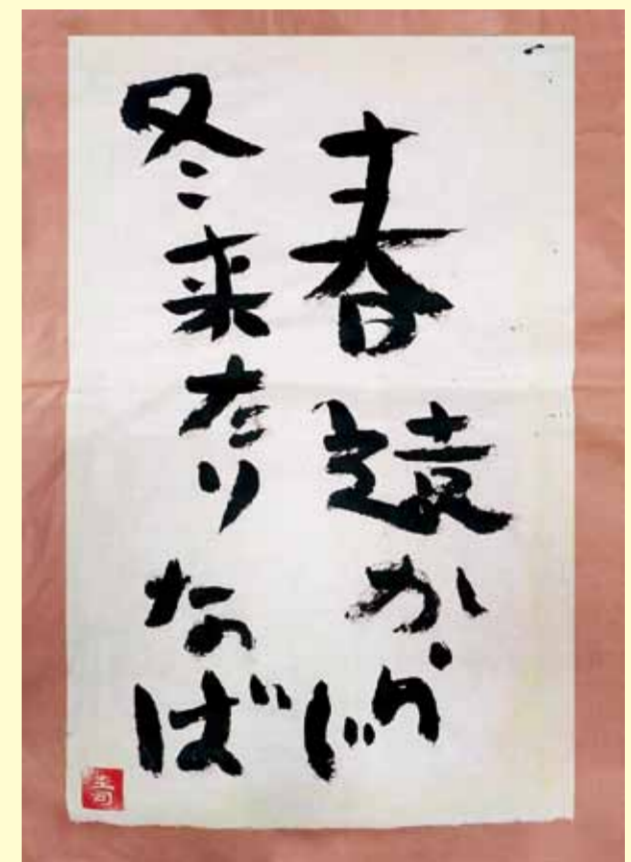 春遠からじ
冬来たりなば